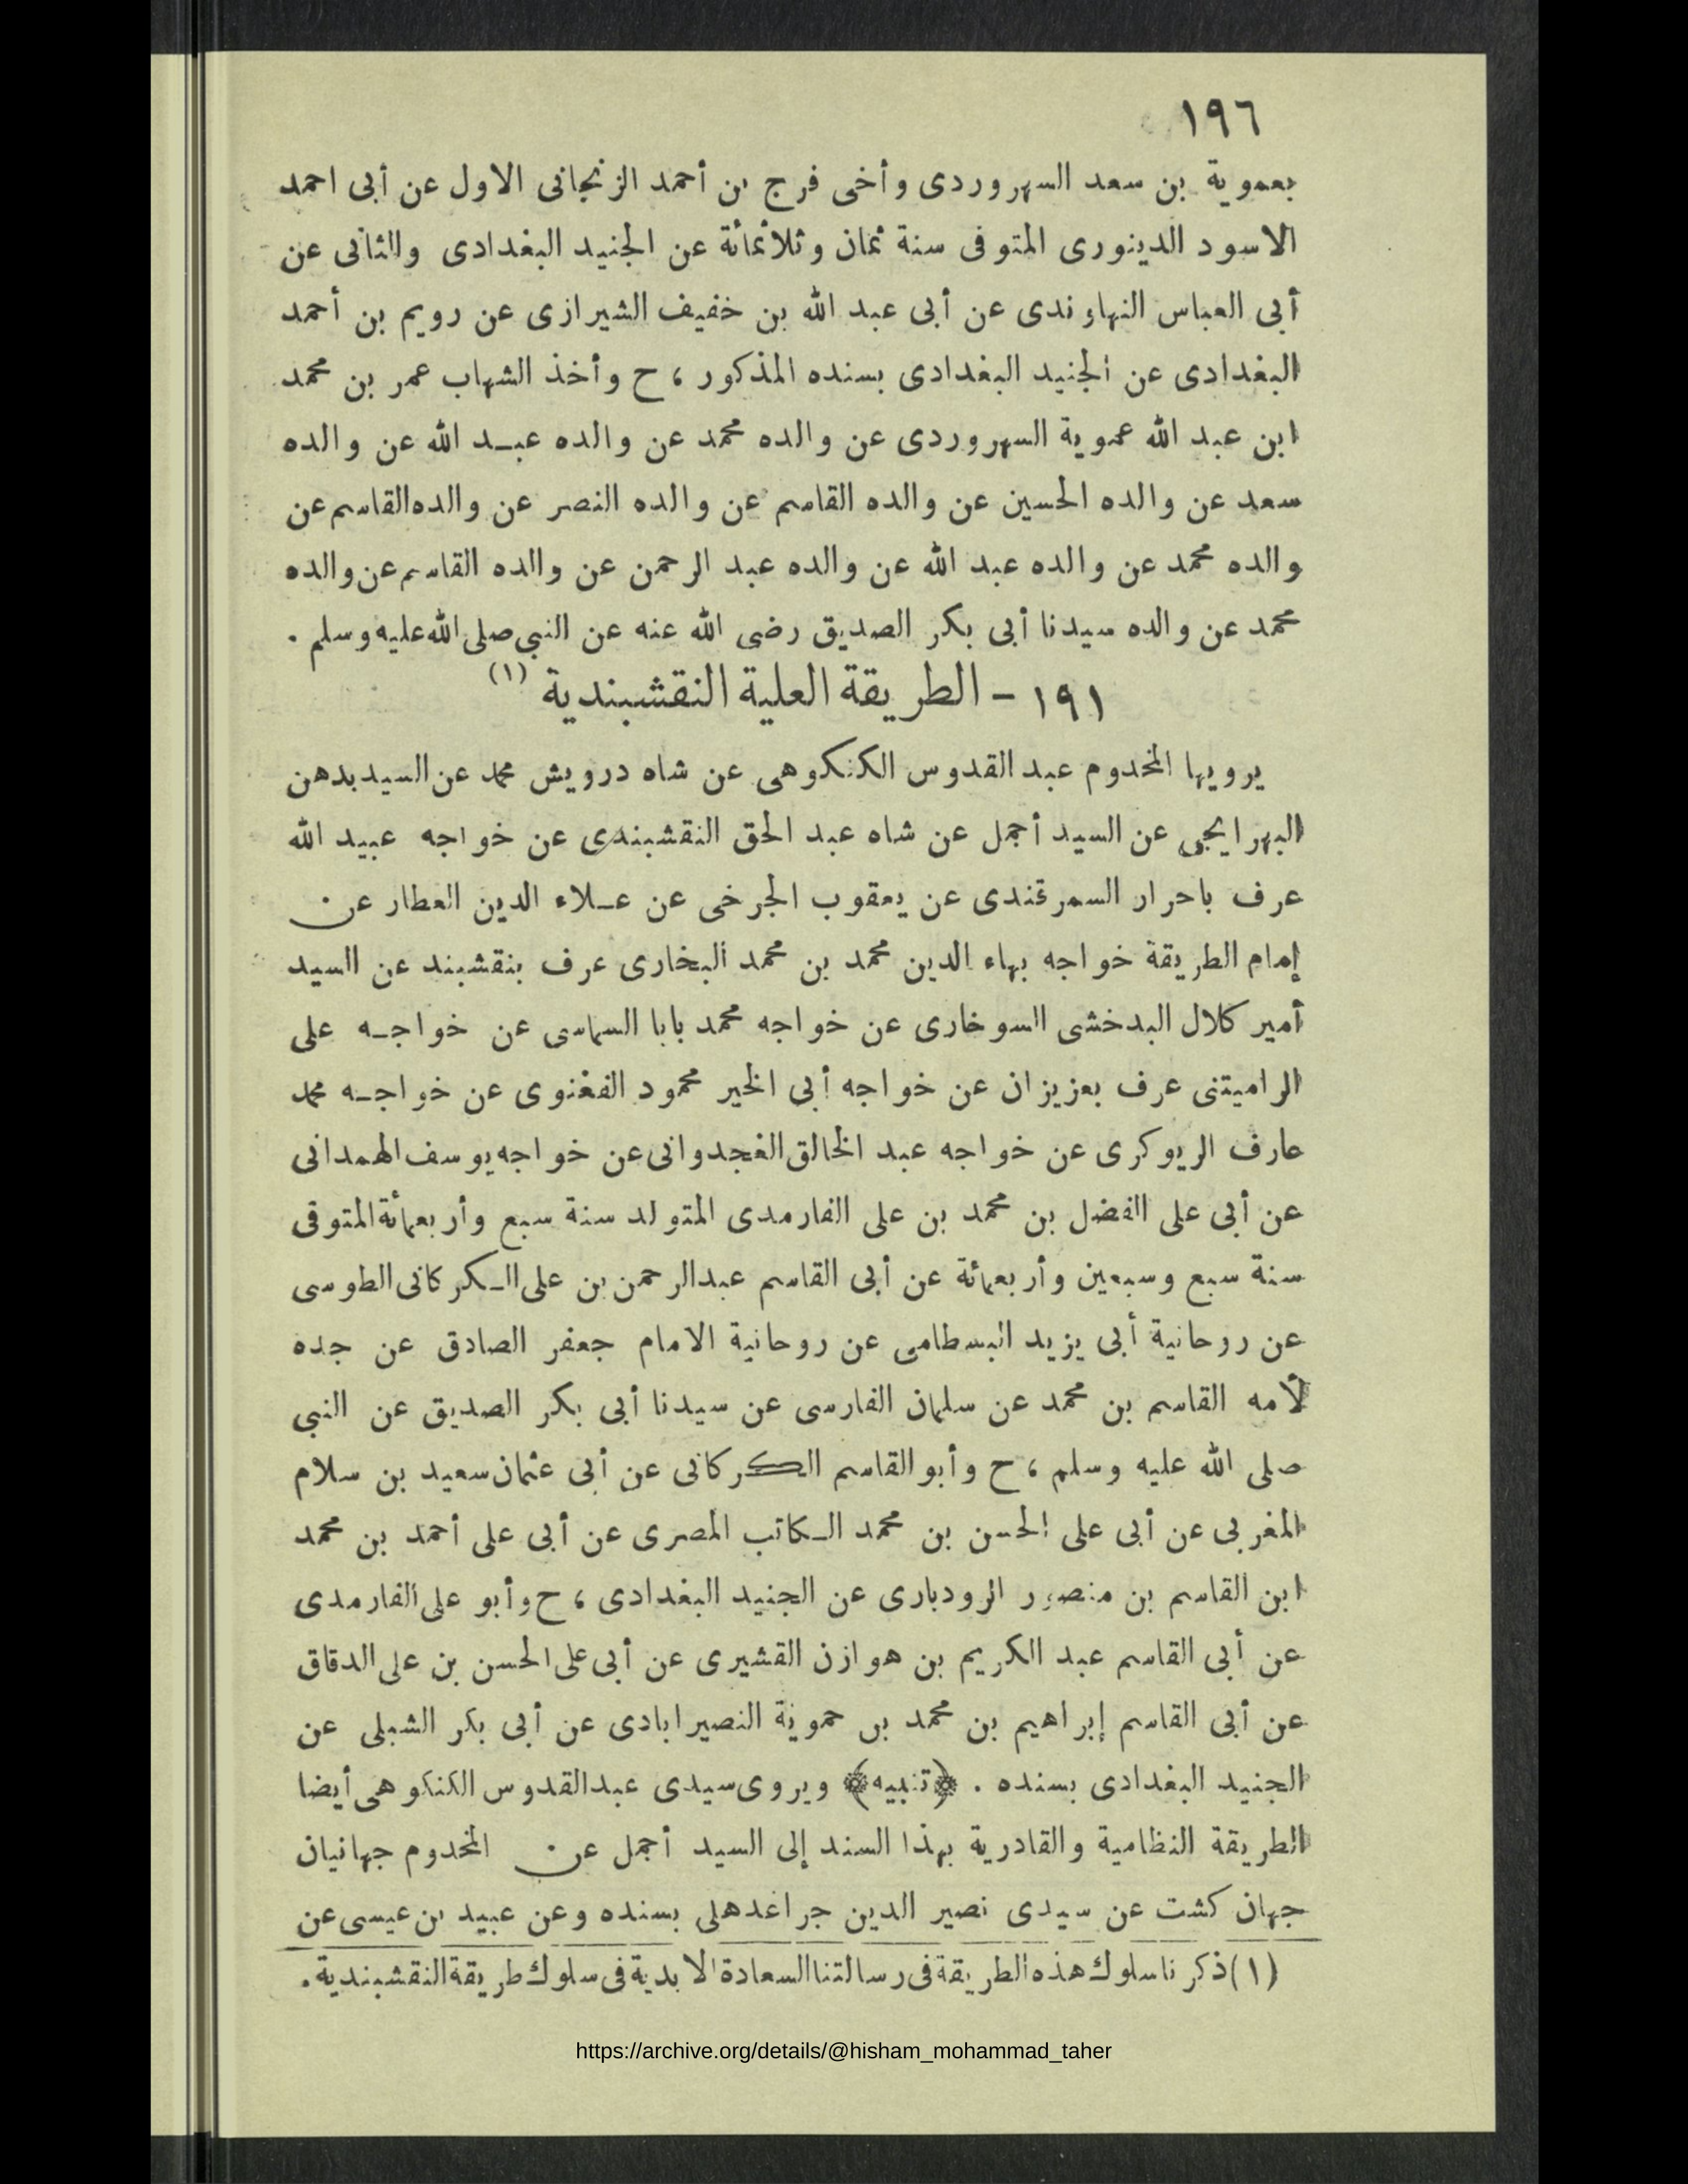 ١٩٦
بعموية بن سعد السهروردى وأخى فرج بن أحمد الزنجانى الاول عن أبى احمد
الاسود الدينورى المتوفى سنة ثمان وثلاثمائة عن الجنيد البغدادى والثانى عن
أبى العباس النهاوندى عن أبى عبد الله بن خفيف الشيرازى عن رويم بن أحمد
البغدادى عن الجنيد البغدادى بسنده المذكور ، ح وأخذ الشهاب عمر بن محمد
ابن عبد الله عموية السهروردى عن والده محمد عن والده عبد الله عن والده
سعد عن والده الحسين عن والده القاسم عن والده النصر عن والده القاسم عن
والده محمد عن والده عبد الله عن والده عبد الرحمن عن والده القاسم عن والده
محمد عن والده سيدنا أبى بكر الصديق رضى الله عنه عن النبي صلى الله عليه وسلم .
١٩١ - الطريقة العلية النقشبندية (١)
يرويها المخدوم عبد القدوس الكنكوهى عن شاه درويش محمد عن السيد بدهن
البهرايجى عن السيد أجمل عن شاه عبد الحق النقشبندى عن خواجه عبيد الله
عرف باحرار السمرقندى عن يعقوب الجرخى عن علاء الدين العطار عن
إمام الطريقة خواجه بهاء الدين محمد بن محمد البخارى عرف بنقشبند عن السيد
أمير كلال البدخشى السوخارى عن خواجه محمد بابا السماسى عن خواجه على
الراميتنى عرف بعزيزان عن خواجه أبى الخير محمود الفغنوى عن خواجه محمد
عارف الريوكرى عن خواجه عبد الخالق الغجدوانى عن خواجه يوسف الهمدانى
عن أبى على الفضل بن محمد بن على الفارمدى المتولد سنة سبع وأربعمائة المتوفى
سنة سبع وسبعين وأربعمائة عن أبى القاسم عبد الرحمن بن على الكركانى الطوسى
عن روحانية أبى يزيد البسطامى عن روحانية الامام جعفر الصادق عن جده
لأمه القاسم بن محمد عن سلمان الفارسى عن سيدنا أبى بكر الصديق عن النبي
صلى الله عليه وسلم ، ح وأبو القاسم الكركانى عن أبى عثمان سعيد بن سلام
المغربى عن أبى على الحسن بن محمد الكاتب المصرى عن أبى على أحمد بن محمد
ابن القاسم بن منصور الرودبارى عن الجنيد البغدادى ، ح وأبو على الفارمدى
عن أبى القاسم عبد الكريم بن هوازن القشيرى عن أبى على الحسن بن على الدقاق
عن أبى القاسم إبراهيم بن محمد بن حموية النصيرابادى عن أبى بكر الشبلى عن
الجنيد البغدادى بسنده . ﴿تنبيه﴾ ويروى سيدى عبد القدوس الكنكوهى أيضا
الطريقة النظامية والقادرية بهذا السند إلى السيد أجمل عن المخدوم جهانيان
جهان كشت عن سيدى نصير الدين جراغدهلى بسنده وعن عبيد بن عيسى عن
(١) ذكرنا سلوك هذه الطريقة فى رسالتنا السعادة الابدية فى سلوك طريقة النقشبندية .
https://archive.org/details/@hisham_mohammad_taher